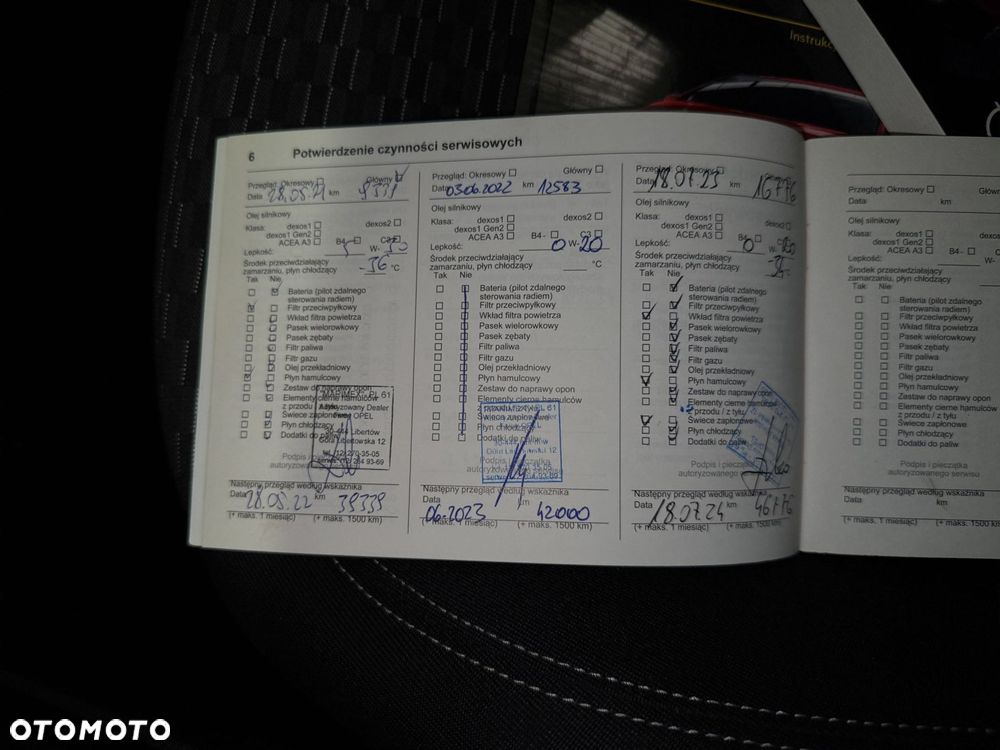 Instrukcj
6 Potwierdzenie czynności serwisowych
Przegląd: Okresowy Główny
Data 28.05.21 km 9339
Olej silnikowy
Klasa: dexos1 dexos2
dexos1 Gen2
ACEA A3 B4 C3
Lepkość: W-
Środek przeciwdziałający
zamarzaniu, płyn chłodzący -36 °C
Tak Nie
Bateria (pilot zdalnego
sterowania radiem)
Filtr przeciwpyłkowy
Wkład filtra powietrza
Pasek wielorowkowy
Pasek zębaty
Filtr paliwa
Filtr gazu
Olej przekładniowy
Płyn hamulcowy
Zestaw do naprawy opon
Elementy cierne hamulców
z przodu / z tyłu
Świece zapłonowe
Płyn chłodzący
Dodatki do paliw
Autoryzowany Dealer
OPEL
Libertów
Góra Libertowska 12
Podpis i pieczątka
autoryzowanego
Następny przegląd według wskaźnika
Data 28.05.22 km 39339
(+ maks. 1 miesiąc) (+ maks. 1500 km)
Przegląd: Okresowy Główny
Data 03.06.2022 km 12583
Olej silnikowy
Klasa: dexos1 dexos2
dexos1 Gen2
ACEA A3 B4 - C3
Lepkość: 0 W-20
Środek przeciwdziałający
zamarzaniu, płyn chłodzący °C
Tak Nie
Bateria (pilot zdalnego
sterowania radiem)
Filtr przeciwpyłkowy
Wkład filtra powietrza
Pasek wielorowkowy
Pasek zębaty
Filtr paliwa
Filtr gazu
Olej przekładniowy
Płyn hamulcowy
Zestaw do naprawy opon
Elementy cierne hamulców
Świece zapłonowe
Płyn chłodzący
Dodatki do paliw
Podpis i pieczątka
autoryzowanego
Następny przegląd według wskaźnika
Data 06.2023 km 42000
(+ maks. 1 miesiąc) (+ maks. 1500 km)
Przegląd: Okresowy
Data 18.07.23 km 16776
Olej silnikowy
Klasa: dexos1 dexos2
dexos1 Gen2
ACEA A3 B4 C3
Lepkość: 0 W-
Środek przeciwdziałający
zamarzaniu, płyn chłodzący °C
Tak Nie
Bateria (pilot zdalnego
sterowania radiem)
Filtr przeciwpyłkowy
Wkład filtra powietrza
Pasek wielorowkowy
Pasek zębaty
Filtr paliwa
Filtr gazu
Olej przekładniowy
Płyn hamulcowy
Zestaw do naprawy opon
Elementy cierne hamulców
z przodu / z tyłu
Świece zapłonowe
Płyn chłodzący
Dodatki do paliw
Podpis i pieczątka
autoryzowanego
Następny przegląd według wskaźnika
Data 18.07.24 km 46776
(+ maks. 1 miesiąc) (+ maks. 1500 km)
Przegląd: Okresowy
Data km
Olej silnikowy
Klasa: dexos1
dexos1 Gen2
ACEA A3 B4 -
Lepkość:
Środek przeciwdziałający
zamarzaniu, płyn chłodzący
Tak Nie
Bateria (pilot zdalnego
sterowania radiem)
Filtr przeciwpyłkowy
Wkład filtra powietrza
Pasek wielorowkowy
Pasek zębaty
Filtr paliwa
Filtr gazu
Olej przekładniowy
Płyn hamulcowy
Zestaw do naprawy opon
Elementy cierne hamulców
z przodu / z tyłu
Świece zapłonowe
Płyn chłodzący
Dodatki do paliw
Podpis i pieczątka
autoryzowanego serwisu
Następny przegląd według wskaźnika
Data km
(+ maks. 1 miesiąc) (+ maks. 1500 km
OTOMOTO